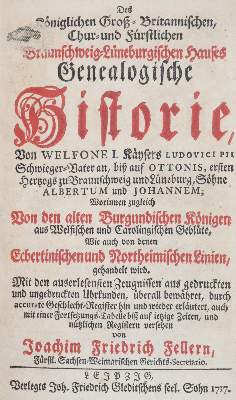 Des
Königlichen Groß-Britannischen,
Chur-und Fürstlichen
Braunschweig-Lüneburgischen Hauses
Genealogische
Historie,
Von WELFONE I. Käysers LUDOVICI PII
Schwieger-Vater an, biß auf OTTONIS, ersten
Hertzogs zu Braunschweig und Lüneburg, Söhne
ALBERTUM und JOHANNEM;
Worinnen zugleich
Von den alten Burgundischen Königen
aus Welfischen und Carolingischen Geblüte,
Wie auch von denen
Ecbertinischen und Northeimischen Linien,
gehandelt wird.
Mit den auserlesensten Zeugnissen aus gedruckten
und ungedruckten Uhrkunden, überall bewähret, durch
accurate Geschlecht-Register hin und wieder erläutert, auch
mit einer Fortsetzungs-Tabelle biß auf ietzige Zeiten, und
nützlichen Registern versehen
von
Joachim Friedrich Fellern,
Fürstl. Sachsen-Weimarischen Gerichts-Secretario.
LEIPZIG,
Verlegts Joh. Friedrich Gleditschens seel. Sohn 1717.